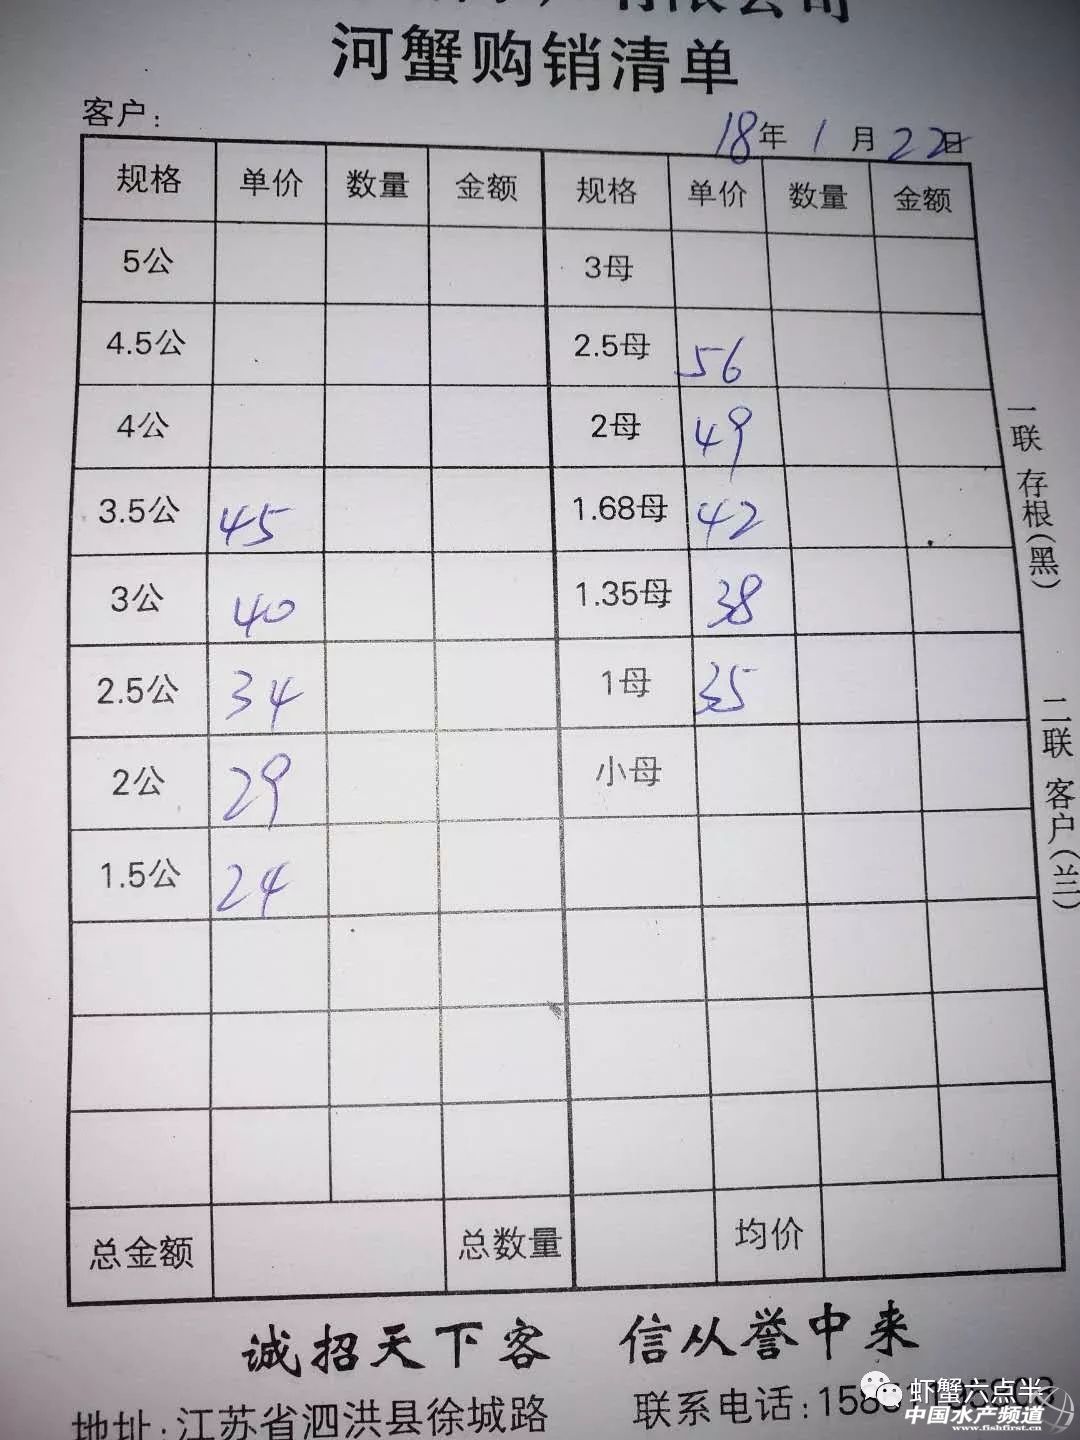 有限公司
河蟹购销清单
客户：
18年 1月 22日
规格 单价 数量 金额 规格 单价 数量 金额
5公 3母
4.5公 2.5母 56
4公 2母 49
3.5公 45 1.68母 42
3公 40 1.35母 38
2.5公 34 1母 35
2公 29 小母
1.5公 24
总金额 总数量 均价
一联 存根(黑)
二联 客户(兰)
诚招天下客 信从誉中来
地址:江苏省泗洪县徐城路 联系电话:158
虾蟹六点半
中国水产频道
www.fishfirst.cn